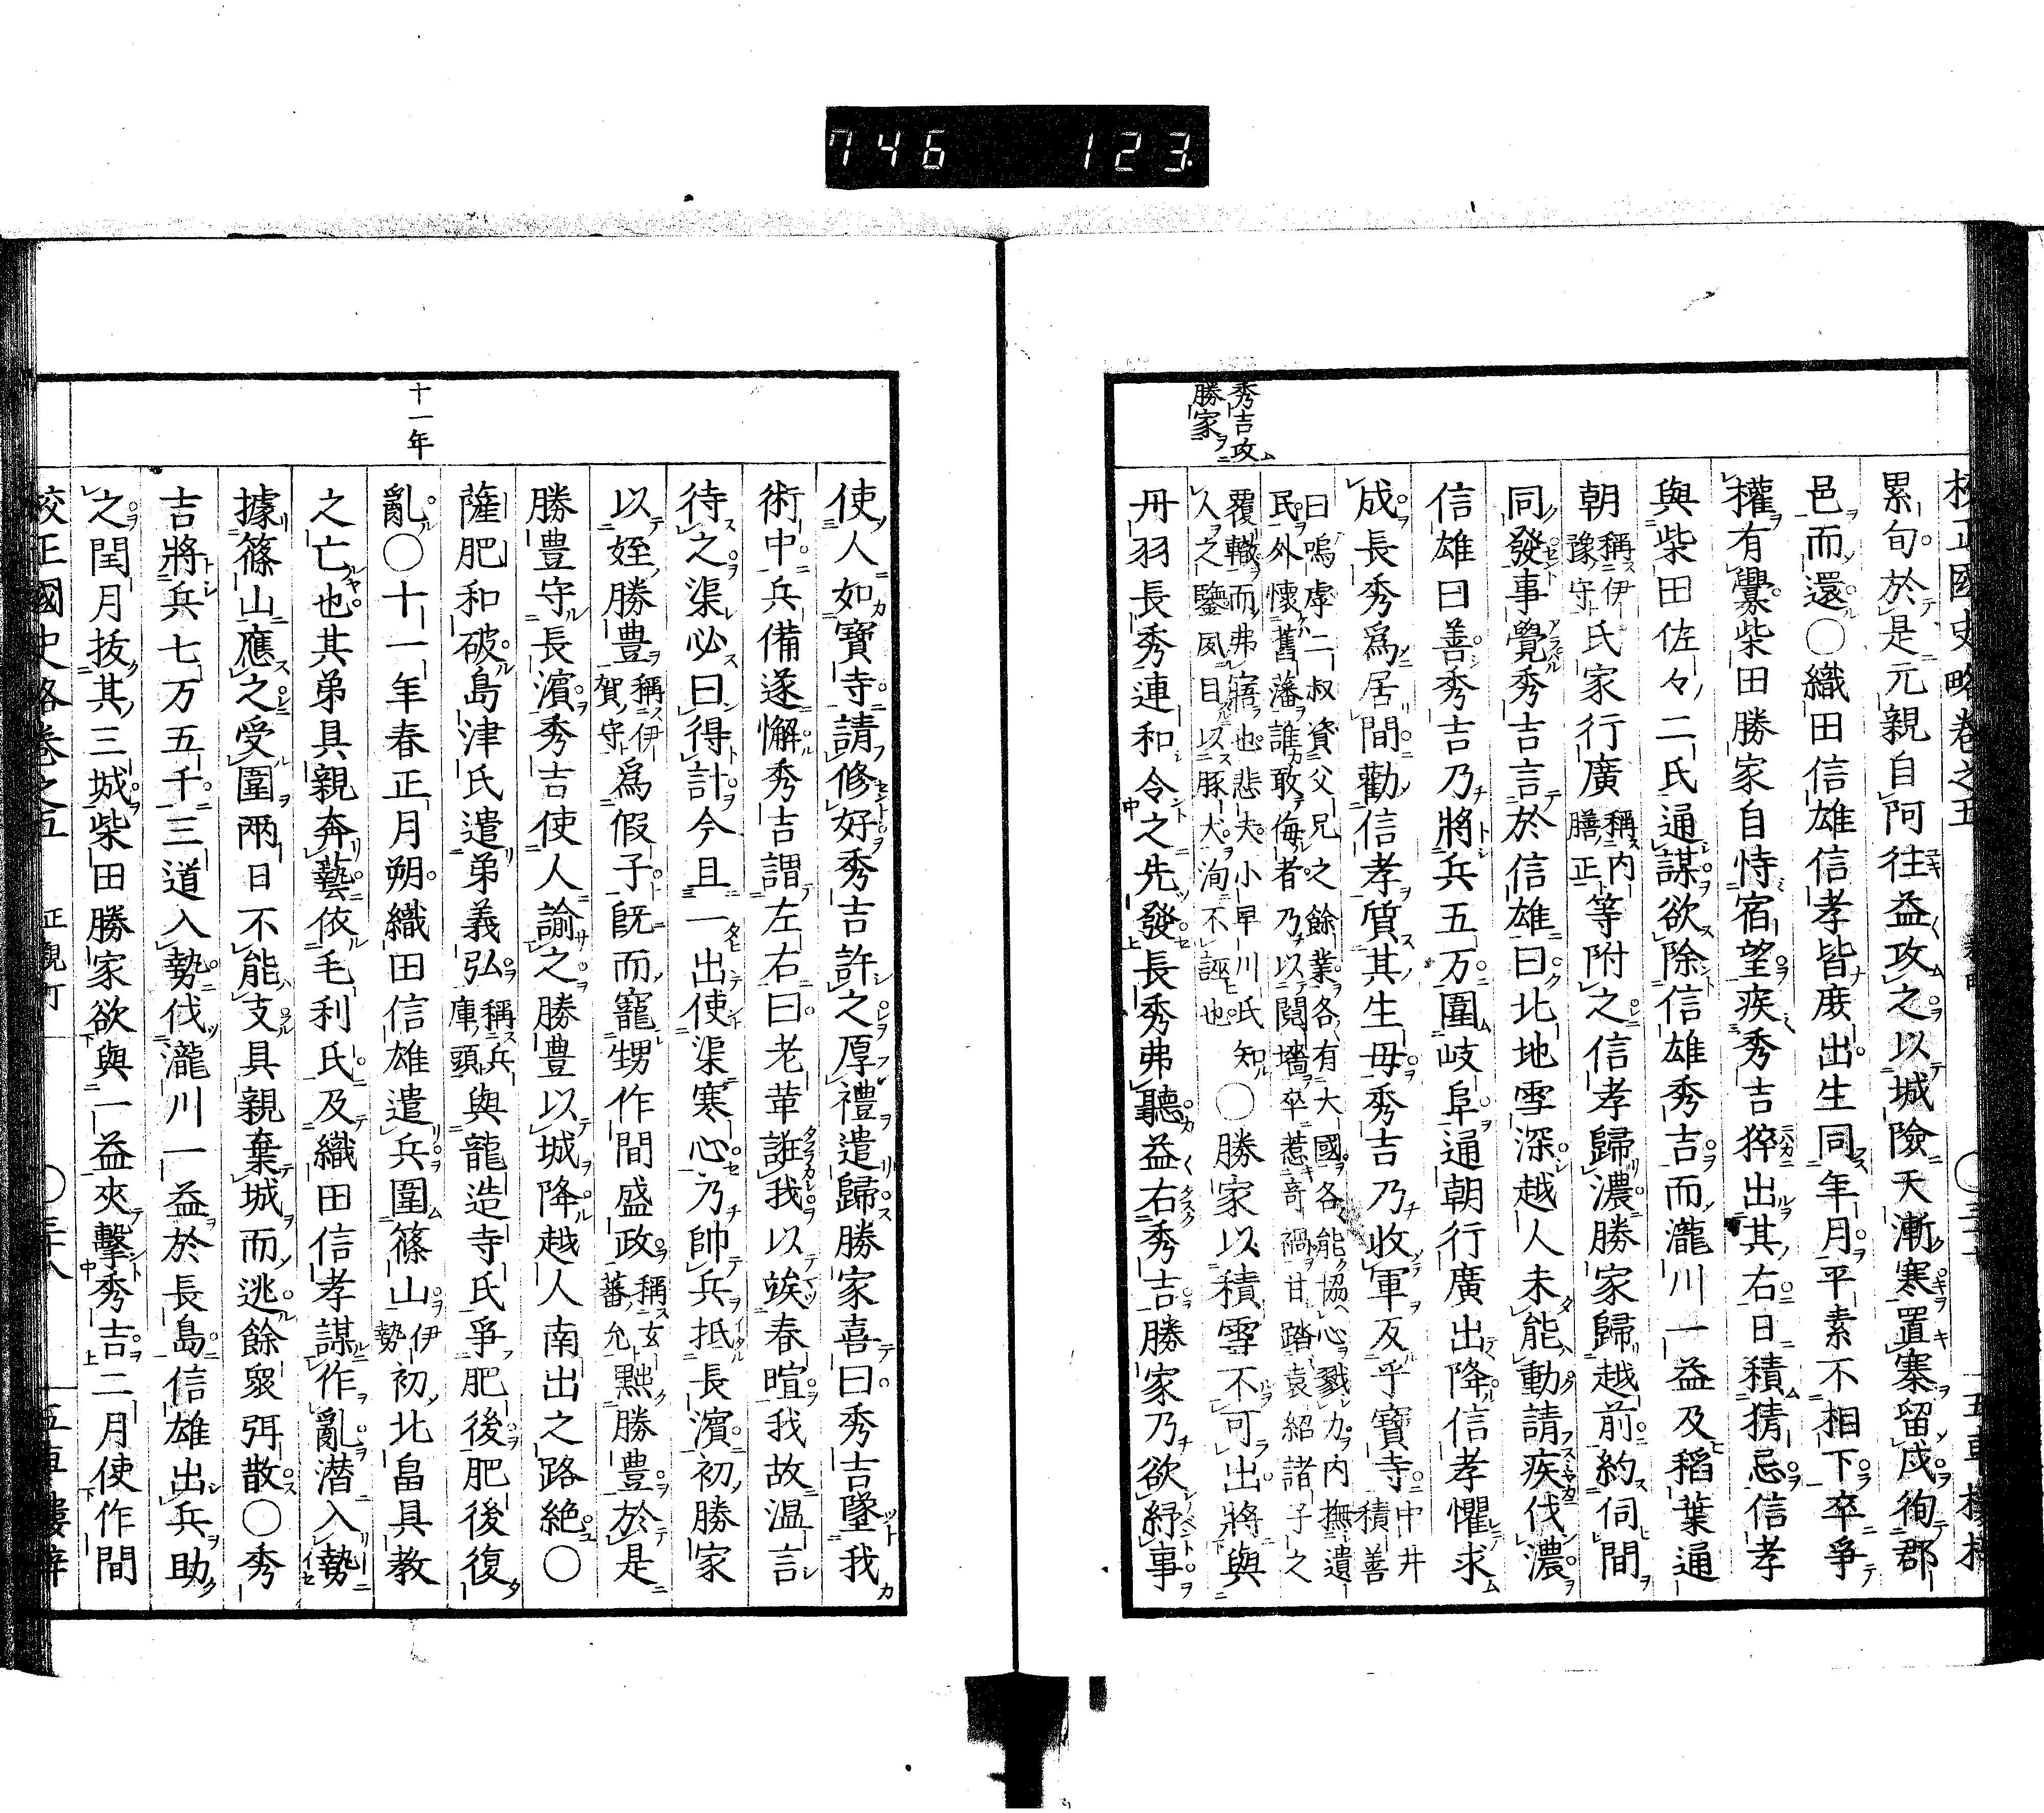 746 123
秀吉攻
勝家
累旬於是元親自阿往益攻之以城險天漸寒置寨留戍徇郡
邑而還○織田信雄信孝皆庶出生同年月平素不相下卒爭
權有釁柴田勝家自恃宿望疾秀吉猝出其右日積猜忌信孝
與柴田佐々二氏通謀欲除信雄秀吉而瀧川一益及稻葉通
朝稱伊豫守氏家行廣稱内膳正等附之信孝歸濃勝家歸越前約伺間
同發事覺秀吉言於信雄曰北地雪深越人未能動請疾伐濃
信雄曰善秀吉乃將兵五万圍岐阜通朝行廣出降信孝懼求
成長秀爲居間勸信孝質其生母秀吉乃收軍反乎寶寺中井積善
曰嗚虖二叔資父兄之餘業各有大國各能協心戮力内撫遺
民外懷舊藩誰敢侮者乃以鬩墻卒惹奇禍甘踏袁紹諸子之
覆轍而弗寤也悲夫小早川氏知
人之鑒夙目以豚犬洵不誣也○勝家以積雪不可出將與
丹羽長秀連和令之先發長秀弗聽益右秀吉勝家乃欲紓事
十一年
使人如寶寺請修好秀吉許之厚禮遣歸勝家喜曰秀吉墜我
術中兵備遂懈秀吉謂左右曰老革誑我以竢春暄我故温言
待之渠必曰得計今且一出使渠寒心乃帥兵抵長濱初勝家
以姪勝豊稱伊賀守爲假子既而寵甥作間盛政稱玄蕃允黜勝豊於是
勝豊守長濱秀吉使人諭之勝豊以城降越人南出之路絶○
薩肥和破島津氏遣弟義弘稱兵庫頭與龍造寺氏爭肥後肥後復
亂○十一年春正月朔織田信雄遣兵圍篠山伊勢初北畠具教
之亡也其弟具親奔藝依毛利氏及織田信孝謀作亂潜入勢
據篠山應之受圍兩日不能支具親棄城而逃餘衆弭散○秀
吉將兵七万五千三道入勢伐瀧川一益於長島信雄出兵助
之閏月抜其三城柴田勝家欲與一益夾擊秀吉二月使作間